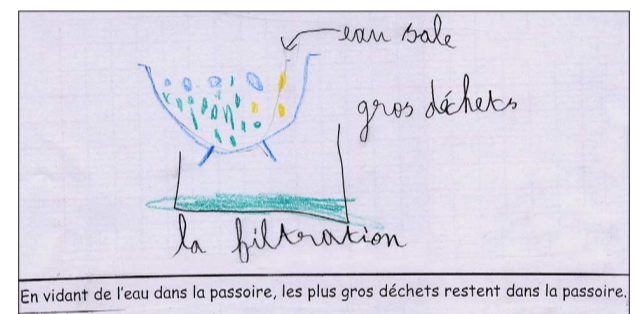 eau sale
gros déchets
la filtration
En vidant de l'eau dans la passoire, les plus gros déchets restent dans la passoire.